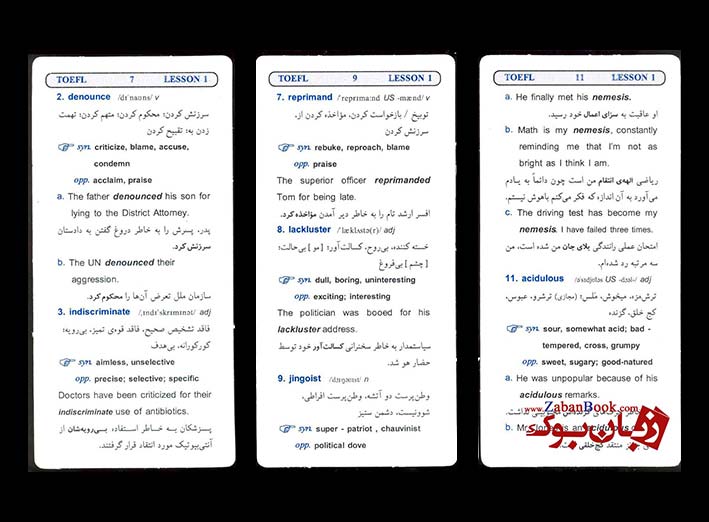 TOEFL 7 LESSON 1
2. denounce /dɪˈnaʊns/ v
سرزنش کردن؛ محکوم کردن؛ متهم کردن؛ تهمت
زدن به؛ تقبیح کردن
syn. criticize, blame, accuse,
condemn
opp. acclaim, praise
a. The father denounced his son for
lying to the District Attorney.
پدر، پسرش را به خاطر دروغ گفتن به دادستان
سرزنش کرد.
b. The UN denounced their
aggression.
سازمان ملل تعرض آن‌ها را محکوم کرد.
3. indiscriminate /ˌɪndɪˈskrɪmɪnət/ adj
فاقد تشخیص صحیح، فاقد قوه‌ی تمیز، بی‌رویه؛
کورکورانه، بی‌هدف
syn. aimless, unselective
opp. precise; selective; specific
Doctors have been criticized for their
indiscriminate use of antibiotics.
پزشکان به خاطر استفاده‌ی بی‌رویه‌شان از
آنتی‌بیوتیک مورد انتقاد قرار گرفتند.
TOEFL 9 LESSON 1
7. reprimand /ˈreprɪmɑːnd US -mænd/ v
توبیخ / بازخواست کردن، مؤاخذه کردن از،
سرزنش کردن
syn. rebuke, reproach, blame
opp. praise
The superior officer reprimanded
Tom for being late.
افسر ارشد تام را به خاطر دیر آمدن مؤاخذه کرد.
8. lackluster /ˈlæklʌstə(r)/ adj
خسته کننده، بی‌روح، کسالت‌آور؛ [مو] بی‌حالت؛
[چشم] بی‌فروغ
syn. dull, boring, uninteresting
opp. exciting; interesting
The politician was booed for his
lackluster address.
سیاستمدار به خاطر سخنرانی کسالت‌آور خود توسط
حضار هو شد.
9. jingoist /ˈdʒɪŋɡəʊɪst/ n
وطن‌پرست دو آتشه، وطن‌پرست افراطی،
شوونیست، دشمن ستیز
syn. super - patriot , chauvinist
opp. political dove
TOEFL 11 LESSON 1
a. He finally met his nemesis.
او عاقبت به سزای اعمال خود رسید.
b. Math is my nemesis, constantly
reminding me that I'm not as
bright as I think I am.
ریاضی الهه‌ی انتقام من است چون دائماً به یادم
می‌آورد به آن اندازه که فکر می‌کنم باهوش نیستم.
c. The driving test has become my
nemesis. I have failed three times.
امتحان عملی رانندگی بلای جان من شده است، من
سه مرتبه رد شده‌ام.
11. acidulous /əˈsɪdjʊləs US -dʒəl-/ adj
ترش‌مزه، میخوش، ملس؛ (مجازی) ترشرو، عبوس،
کج خلق، گزنده
syn. sour, somewhat acid; bad -
tempered, cross, grumpy
opp. sweet, sugary; good-natured
a. He was unpopular because of his
acidulous remarks.
www.ZabanBook.com
زبان بوک
b. is an acidulous